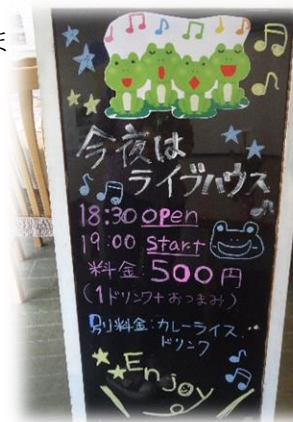 今夜は
ライブハウス
18:30 open
19:00 start
料金:500円
(1ドリンク+おつまみ)
別料金:カレーライス
ドリンク
Enjoy